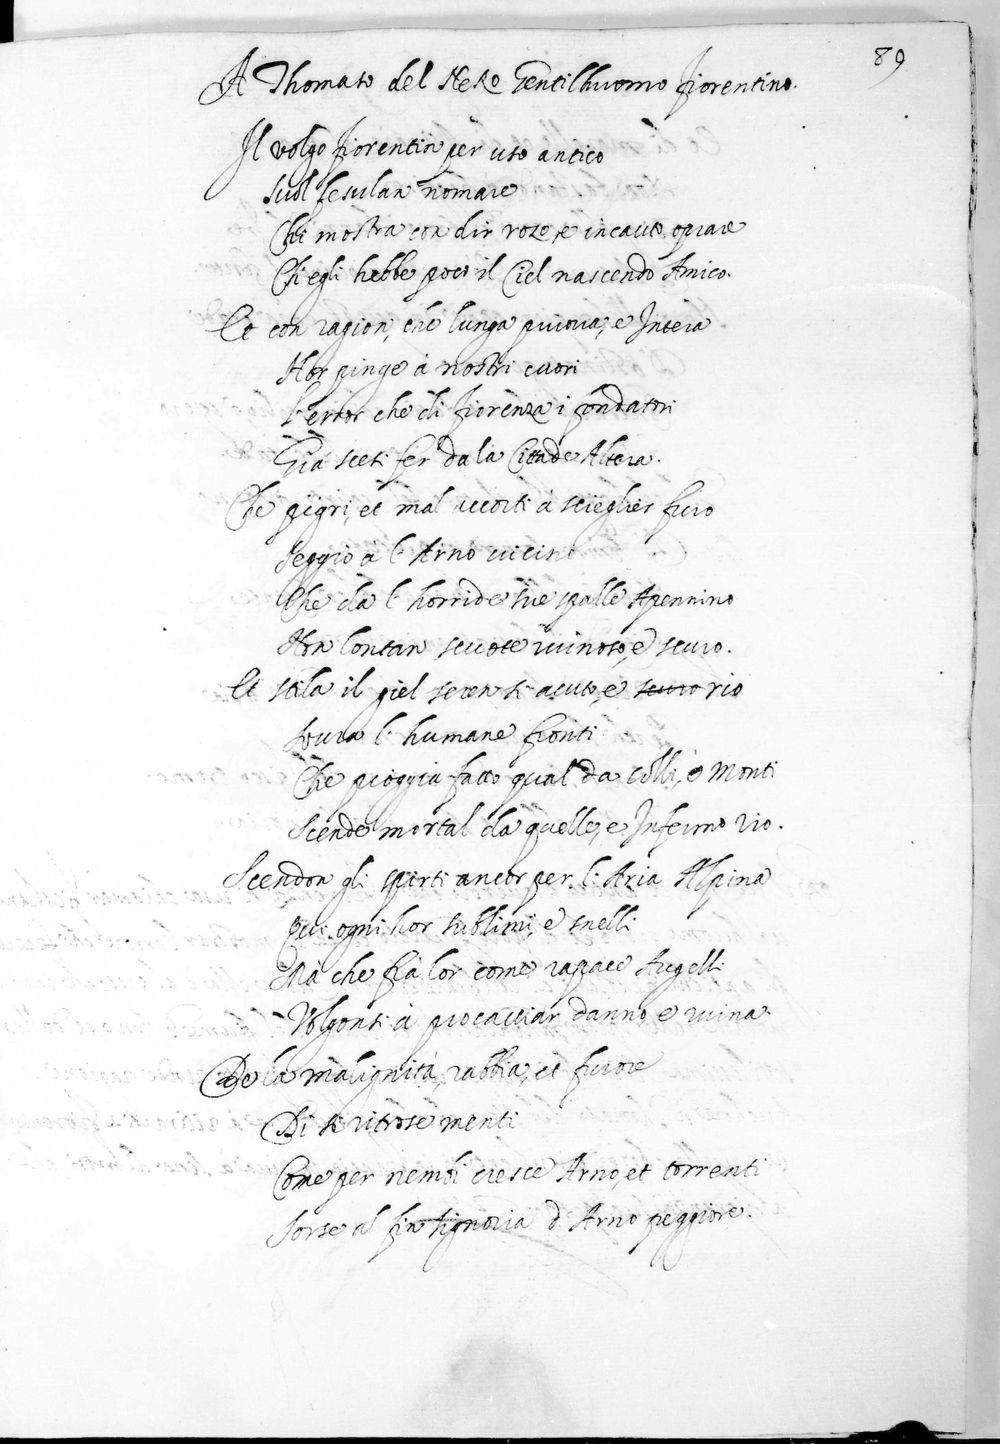 89
A Thomaso del Nero Gentilhuomo fiorentino.
Il volgo fiorentin per uso antico
suol fesulan nomare
Chi mostra con dir rozo, e incauto oprare
Ch'egli hebbe poco il Ciel nascendo Amico.
Et con ragion, che lunga pruova, e Intera
Hor pinge à nostri cuori
l'error che di fiorenza i fondatori
Già scesi fer da la Cittade Altera.
Che pigri, et mal accorti à scieglier furo
seggio à l'Arno vicino
Che da l'horride sue spalle Apennino
Non lontan scuote ruinoso, e scuro.
Et stila il giel seren si acuto, e scuro rio
sovra l'humane fronti
Che pioggia fatto qual da colli, e Monti
scende mortal da quelle, e Infermo rio.
Scendon gli spirti ancor per l'Aria Alpina
qui ogni hor sublimi, e snelli
Mà che frà lor come rapaci Augelli
Volgonsi à procacciar danno e ruina.
De la malignità, rabbia, et furore
Di si ritrose menti
Come per nembi cresce Arno, et torrenti
sorse al fin signoria d'Arno peggiore.